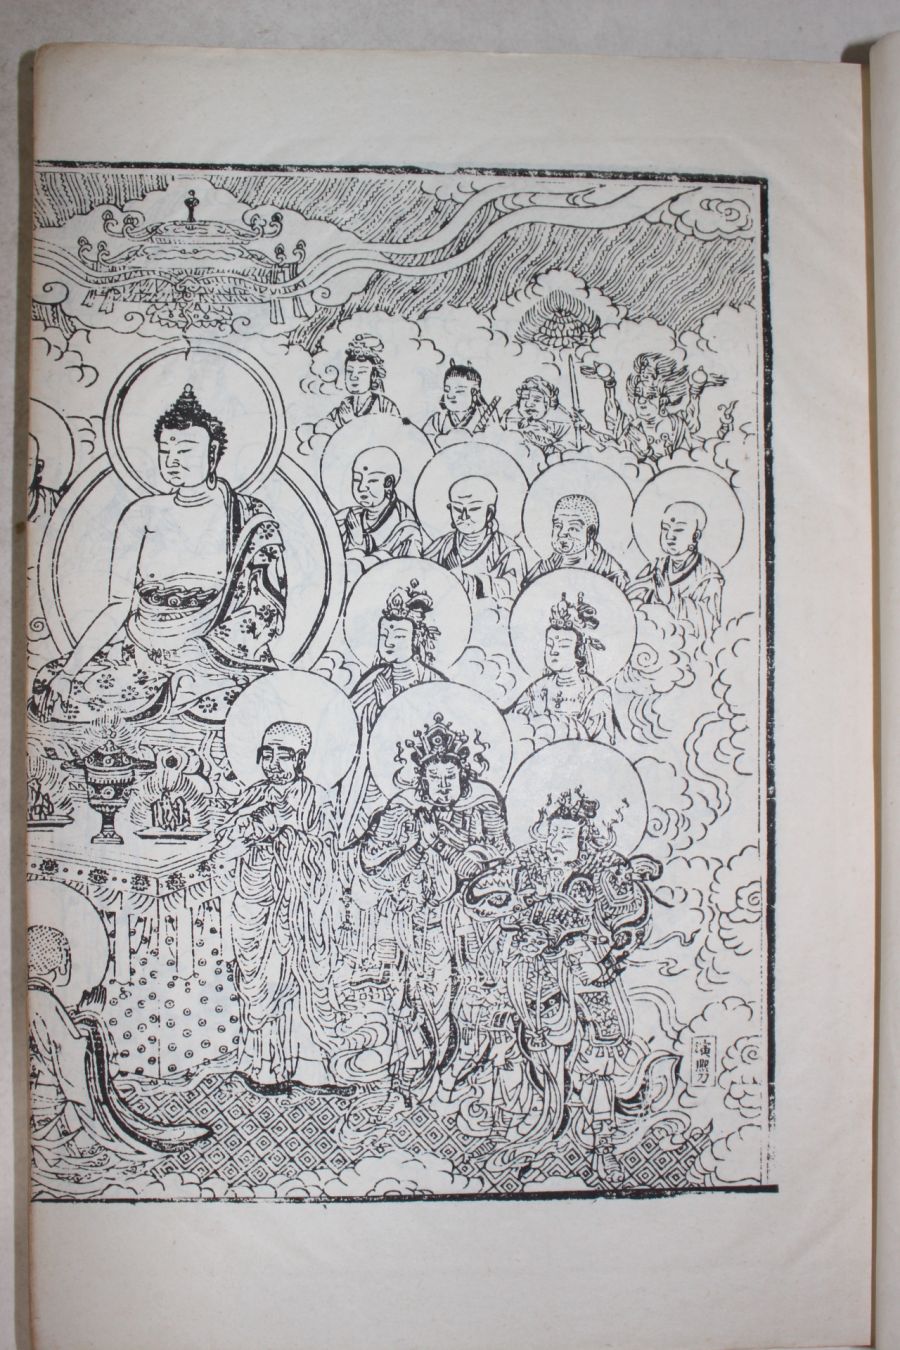 演熙刀